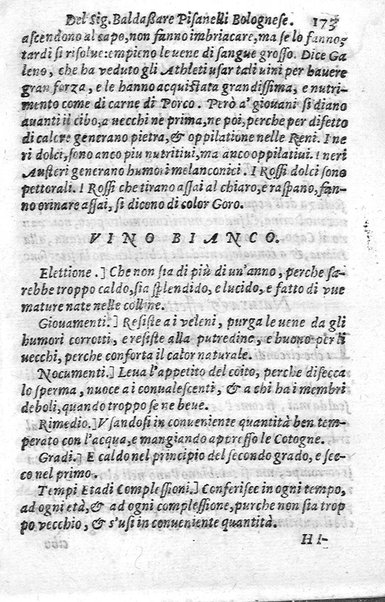 Del Sig. Baldaßare Pisanelli Bolognese. 173
ascendono al capo, non fanno imbriacare, ma se lo fanno,
tardi si risolue: empieno le uene di sangue grosso. Dice Ga
leno, che ha veduto gli Athleti usar tali uini per hauere
gran forza, e le hanno acquistata grandissima, e nutri-
mento come di carne di Porco. Però a' giouani si diano
auanti il cibo, a uecchi ne prima, ne poi, perche per difetto
di calore generano pietra, & oppilatione nelle Reni. I ne
ri dolci, sono anco piu nutritiui, ma anco oppilatiui. I neri
Austeri generano humori melanconici. I Rossi dolci sono
pettorali. I Rossi che tirano assai al chiaro, e raspano, fan-
no orinare assai, si dicono di color Goro.
VINO BIANCO.
Elettione.] Che non sia di più di un'anno, perche sa-
rebbe troppo caldo, sia splendido, e lucido, e fatto di vue
mature nate nelle colline.
Giouamenti.] Resiste ai veleni, purga le uene da gli
humori corrotti, e resiste alla putredine, e buono per li
vecchi, perche conforta il calor naturale.
Nocumenti.] Leua l'appetito del coito, perche disecca
lo sperma, nuoce ai conualescenti, & a chi ha i membri
deboli, quando troppo se ne beue.
Rimedio.] Vsandosi in conueniente quantità ben tem-
perato con l'acqua, e mangiando appresso le Cotogne.
Gradi.] E caldo nel principio del secondo grado, e sec-
co nel primo.
Tempi Etadi Complessioni.] Conferisce in ogni tempo,
ad ogni età, & ad ogni complessione, purche non sia trop
po vecchio, & s'usi in conueniente quantità.
HI-